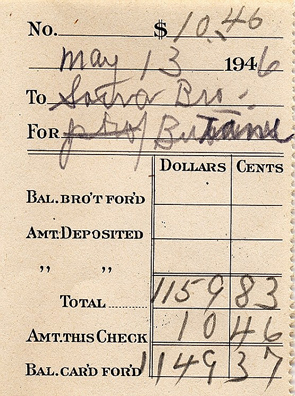 No. $ 10.46
May 13 1946
To Bro.
For Butane
Dollars Cents
Bal. Bro't For'd
Amt. Deposited
„ „
Total ........ 1159 83
Amt. this Check 10 46
Bal. Car'd For'd 1149 37